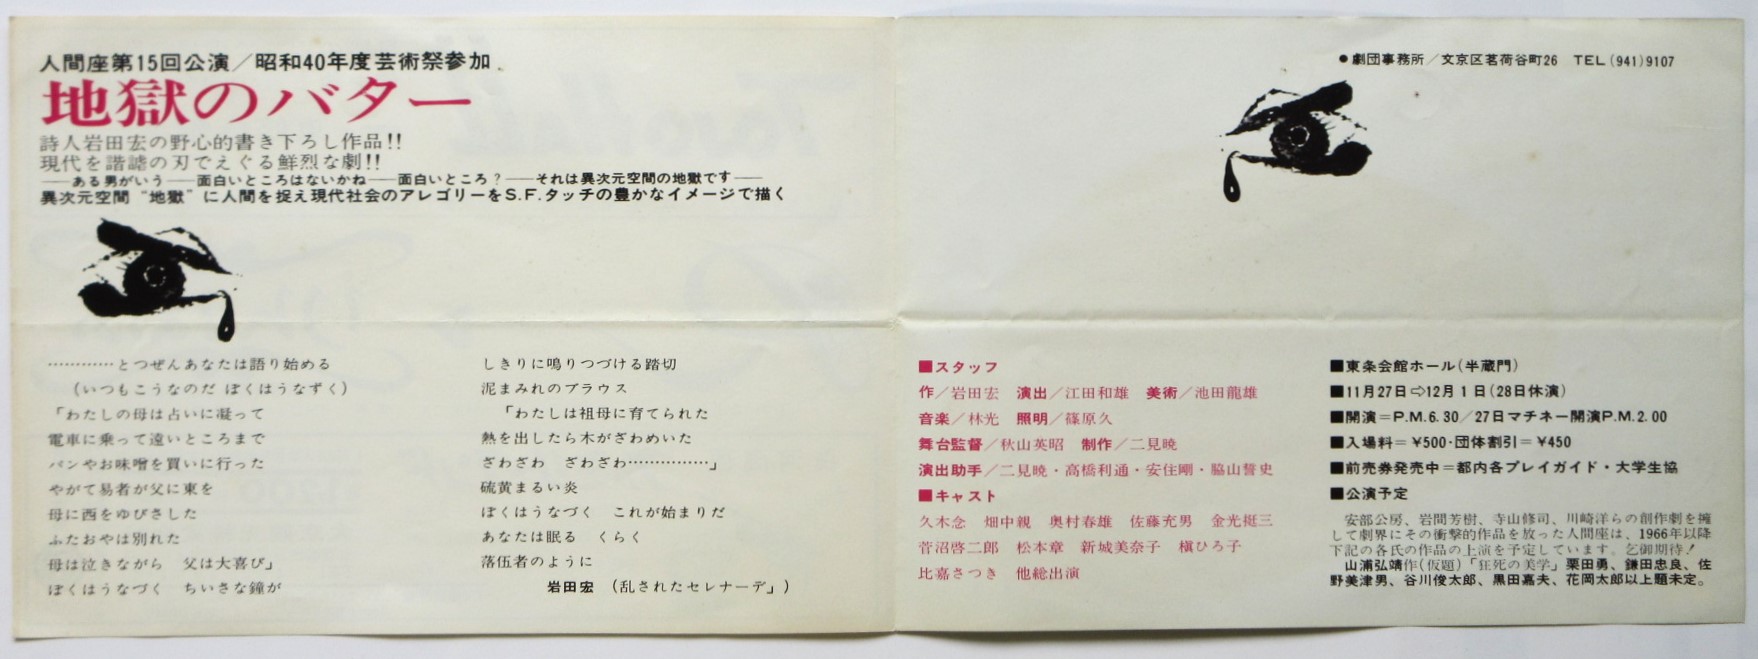 人間座第15回公演／昭和40年度芸術祭参加
地獄のバター
詩人岩田宏の野心的書き下ろし作品!!
現代を諧謔の刃でえぐる鮮烈な劇!!
——ある男がいう——面白いところはないかね——面白いところ？——それは異次元空間の地獄です——
異次元空間“地獄”に人間を捉え現代社会のアレゴリーをS.F.タッチの豊かなイメージで描く
…………とつぜんあなたは語り始める
（いつもこうなのだ ぼくはうなずく）
「わたしの母は占いに凝って
電車に乗って遠いところまで
パンやお味噌を買いに行った
やがて易者が父に東を
母に西をゆびさした
ふたおやは別れた
母は泣きながら　父は大喜び」
ぼくはうなづく　ちいさな鐘が
しきりに鳴りつづける踏切
泥まみれのブラウス
「わたしは祖母に育てられた
熱を出したら木がざわめいた
ざわざわ　ざわざわ……………」
硫黄まるい炎
ぼくはうなづく　これが始まりだ
あなたは眠る　くらく
落伍者のように
岩田宏　（乱されたセレナーデ」）
●劇団事務所／文京区茗荷谷町26　TEL(941)9107
■スタッフ
作／岩田宏　演出／江田和雄　美術／池田龍雄
音楽／林光　照明／篠原久
舞台監督／秋山英昭　制作／二見暁
演出助手／二見暁・高橋利通・安住剛・脇山誓史
■キャスト
久木念　畑中親　奥村春雄　佐藤充男　金光挺三
菅沼啓二郎　松本章　新城美奈子　槇ひろ子
比嘉さつき　他総出演
■東条会館ホール(半蔵門)
■11月27日⇨12月1日(28日休演)
■開演＝P.M.6.30／27日マチネー開演P.M.2.00
■入場料＝¥500・団体割引＝¥450
■前売券発売中＝都内各プレイガイド・大学生協
■公演予定
安部公房、岩間芳樹、寺山修司、川崎洋らの創作劇を擁
して劇界にその衝撃的作品を放った人間座は、1966年以降
下記の各氏の作品の上演を予定しています。乞御期待！
山浦弘靖作(仮題)「狂死の美学」栗田勇、鎌田忠良、佐
野美津男、谷川俊太郎、黒田嘉夫、花岡太郎以上題未定。